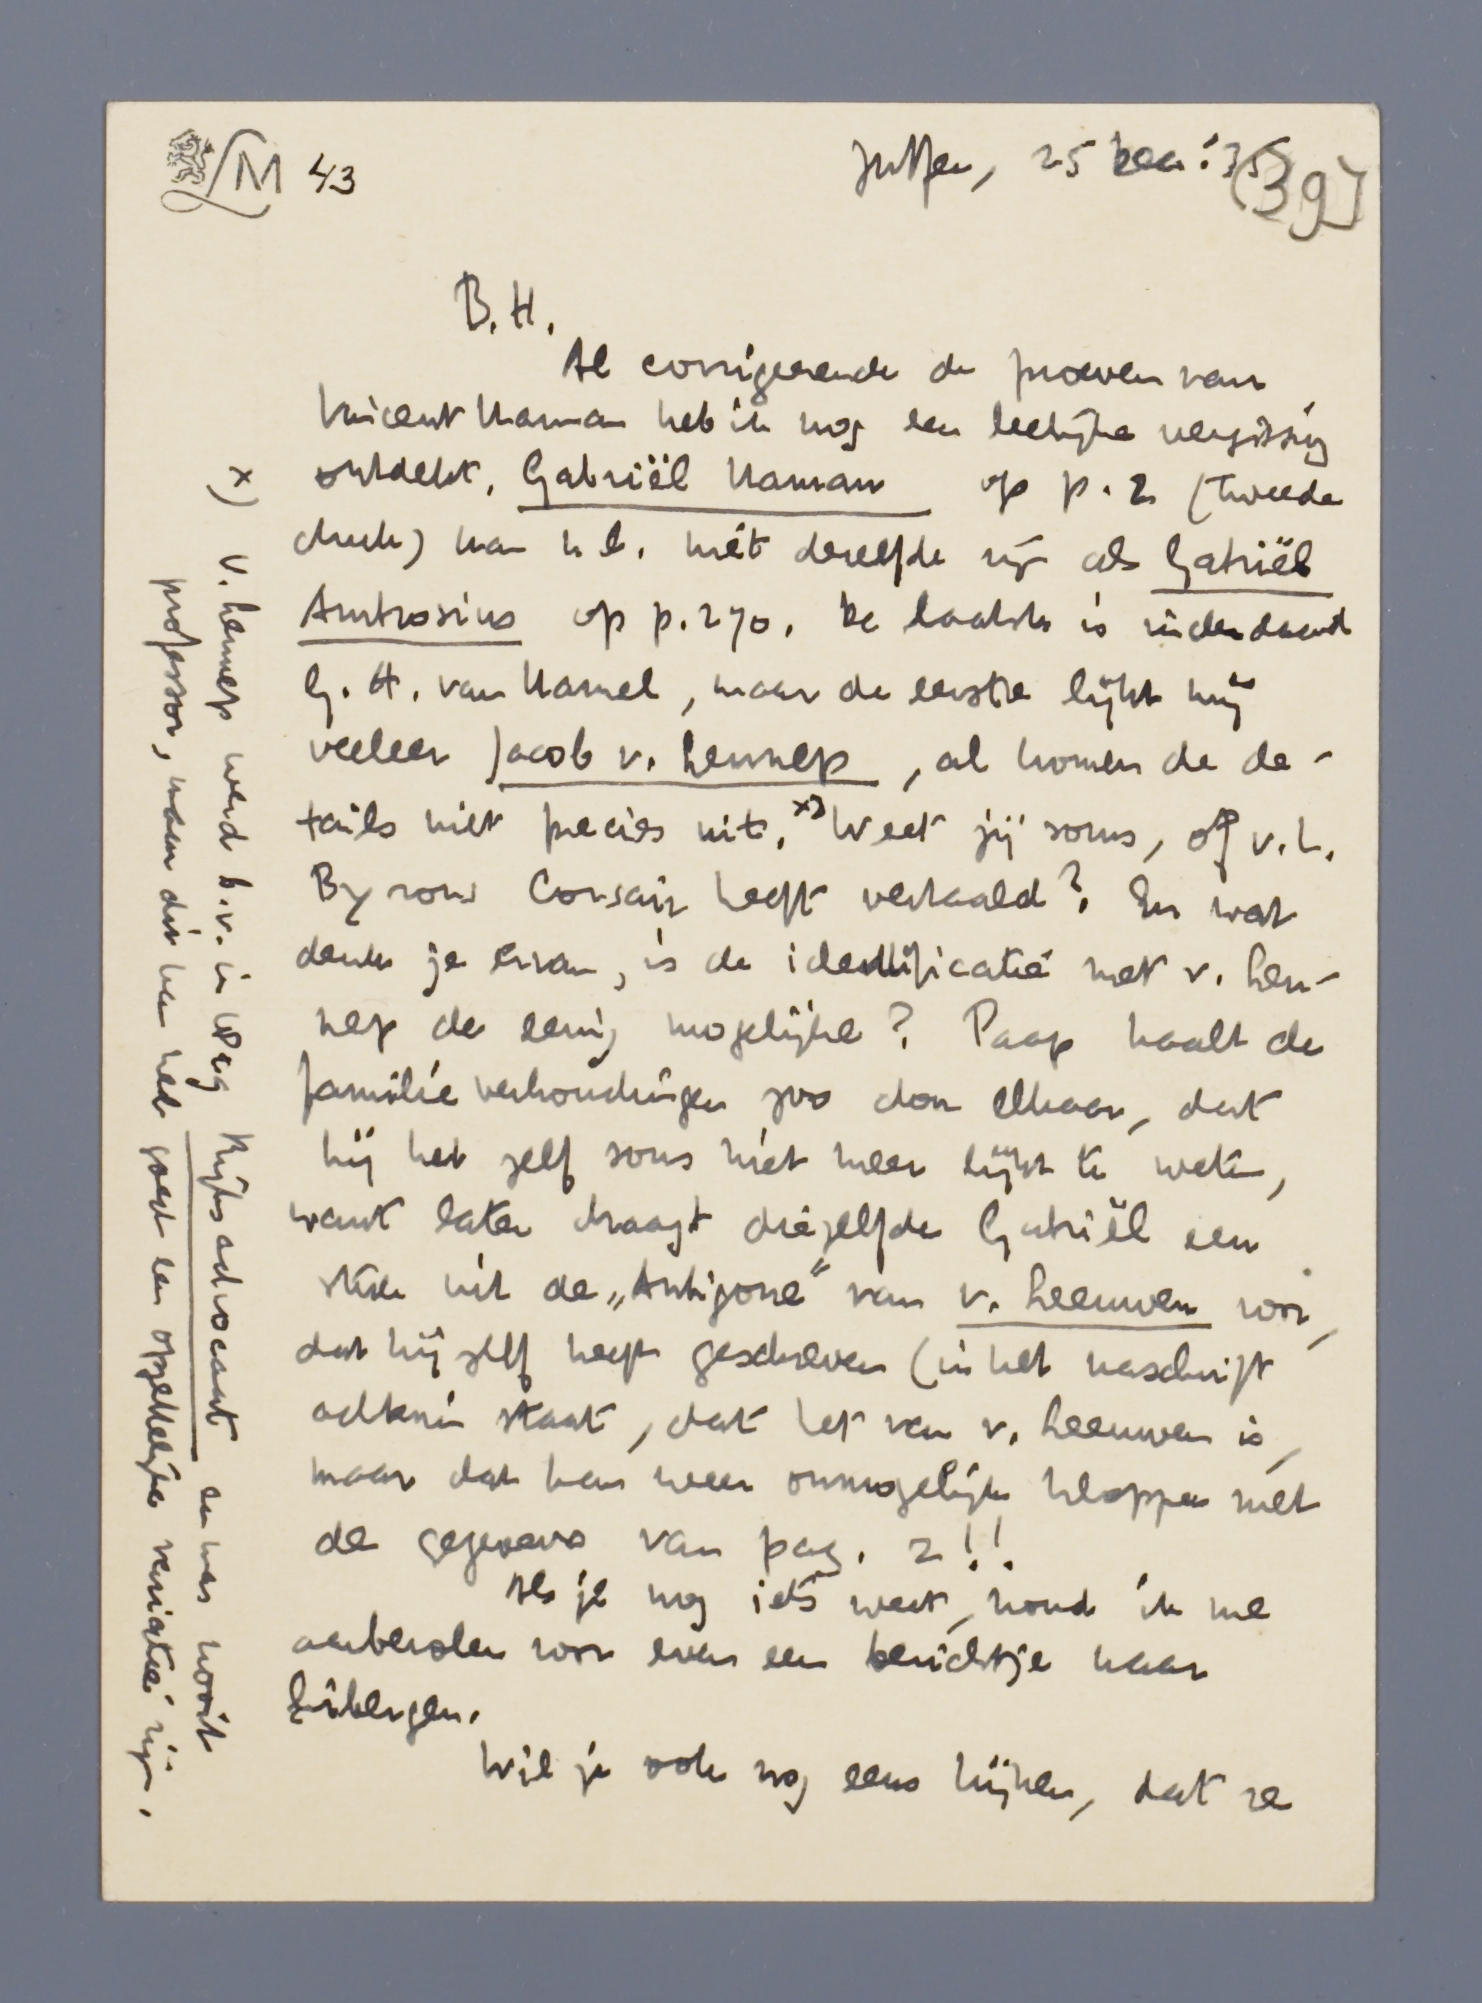 LM 43
Zutfen, 25 Dec. '35
(39)
B.H.
Al corrigeerende de proeven van
Vincent Haman heb ik nog een leelijke vergissing
ontdekt. Gabriël Haman op p. 2 (tweede
druk) kan n.l. niet dezelfde zijn als Gabriël
Ambrosius op p. 270. De laatste is inderdaad
G.H. van Hamel, maar de eerste lijkt mij
veeleer Jacob v. Lennep, al komen de de-
tails niet precies uit. x) Weet jij soms, of v.L.
Byrons Corsair heeft vertaald? En wat
denk je ervan, is de identificatie met v. Len-
nep de eenig mogelijke? Paap haalt de
familieverhoudingen zoo door elkaar, dat
hij het zelf soms niet meer lijkt te weten,
want later draagt diezelfde Gabriël een
stuk uit de „Antigone" van v. Leeuwen voor,
dat hij zelf heeft geschreven (in het naschrift
achterin staat, dat het van v. Leeuwen is,
maar dat kan weer onmogelijk kloppen met
de gegevens van pag. 2!!
Als je nog iets weet, houd ik me
aanbevolen voor even een berichtje naar
Eibergen.
Wil je ook nog eens kijken, dat ze
x) v. Lennep werd b.v. in Rijksadvocaat en was nooit
professor, maar dit kan heel goed een opzettelijke variatie zijn.